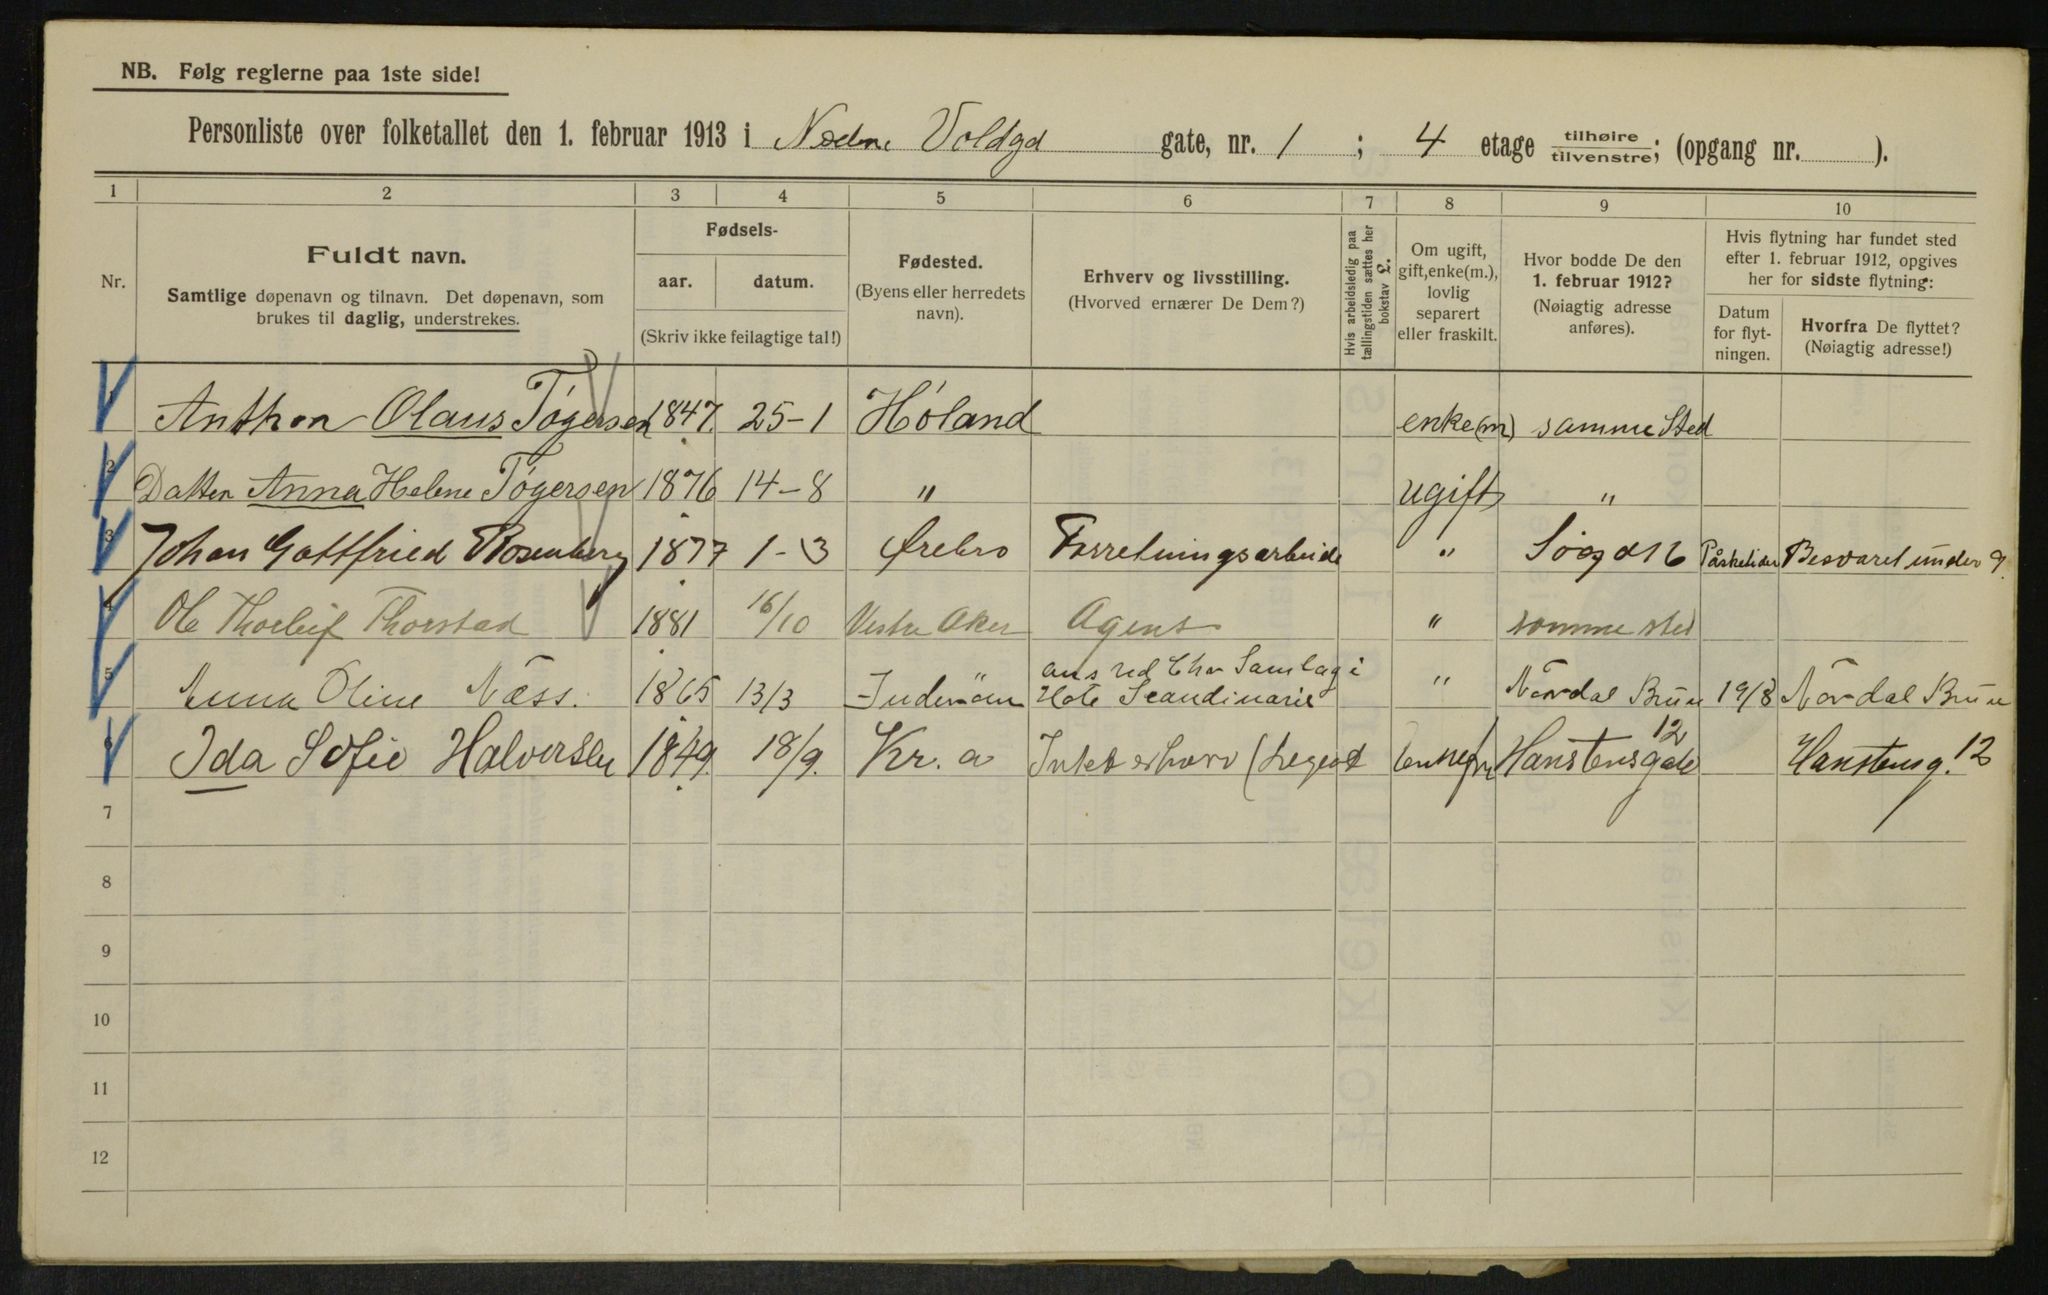 NB. Følg reglerne paa 1ste side!
Personliste over folketallet den 1. februar 1913 i Nedre Voldgd gate, nr. 1 ; 4 etage tilhøire tilvenstre; (opgang nr. ).
1 2 3 4 5 6 7 8 9 10
Nr.
Fuldt navn.
Samtlige døpenavn og tilnavn. Det døpenavn, som
brukes til daglig, understrekes.
Fødsels-
aar. datum.
(Skriv ikke feilagtige tal!)
Fødested.
(Byens eller herredets
navn).
Erhverv og livsstilling.
(Hvorved ernærer De Dem?)
Hvis arbeidsledig paa
tællingstiden sættes her
bokstav £.
Om ugift,
gift, enke(m.),
lovlig
separert
eller fraskilt.
Hvor bodde De den
1. februar 1912?
(Nøiagtig adresse
anføres).
Hvis flytning har fundet sted
efter 1. februar 1912, opgives
her for sidste flytning:
Datum
for flyt-
ningen.
Hvorfra De flyttet?
(Nøiagtig adresse!)
1 Anthon Olaus Tøgersen 1847. 25-1 Høland enke(m) samme Sted
2 Datter Anna Helene Tøgersen 1876 14-8 " ugift "
3 Johan Gottfried Rosenberg 1877 1-3 Ørebro Forretningsarbeide " Søgd 16 Påsketiden Besvaret under 9.
4 Ole Thorleif Thorstad 1881 16/10 Vestre Aker Agent " samme sted
5 Anna Oline Næss. 1865 13/3 Inderöen ans ved Chra Samlag i
Hote Scandinavie " Nordal Brun 19/8 Nordal Brun
6 Ida Sofie Halversen 1849. 18/9. Kr. a Intet erhverv (Legat Hanstensgate 12 Hanstensg. 12
7
8
9
10
11
12